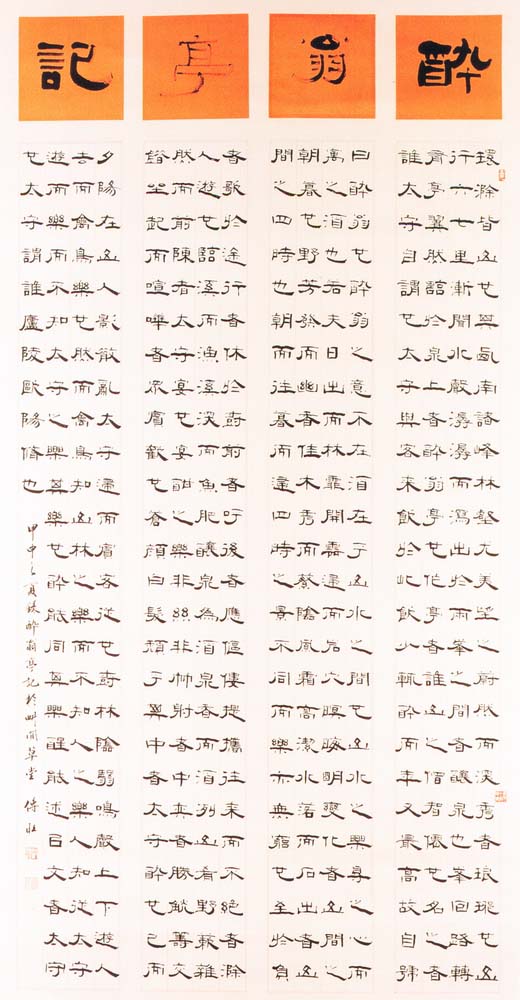 醉翁亭記
環滁皆山也其西南諸峰林壑尤美望之蔚然而深秀者琅琊也山
行六七里漸聞水聲潺潺而瀉出於兩峰之間者釀泉也峰回路轉
有亭翼然臨於泉上者醉翁亭也作亭者誰山之僧智僊也名之者
誰太守自謂也太守與客來飲於此飲少輒醉而年又最高故自號
曰醉翁也醉翁之意不在酒在乎山水之間也山水之樂得之心而
寓之酒也若夫日出而林霏開雲歸而巖穴暝晦明變化者山間之
朝暮也野芳發而幽香佳木秀而繁陰風霜高潔水落而石出者山
間之四時也朝而往暮而歸四時之景不同而樂亦無窮也至於負
者歌於途行者休於樹前者呼後者應傴僂提攜往來而不絕者滁
人遊也臨溪而漁溪深而魚肥釀泉為酒泉香而酒洌山肴野蔌雜
然而前陳者太守宴也宴酣之樂非絲非竹射者中弈者勝觥籌交
錯坐起而喧嘩者眾賓歡也蒼顏白髮頹乎其中者太守醉也已而
夕陽在山人影散亂太守歸而賓客從也樹林陰翳鳴聲上下遊人
去而禽鳥樂也然而禽鳥知山林之樂而不知人之樂人知從太守
遊而樂而不知太守之樂其樂也醉能同其樂醒能述以文者太守
也太守謂誰廬陵歐陽脩也
甲申之夏錄醉翁亭記於閒草堂